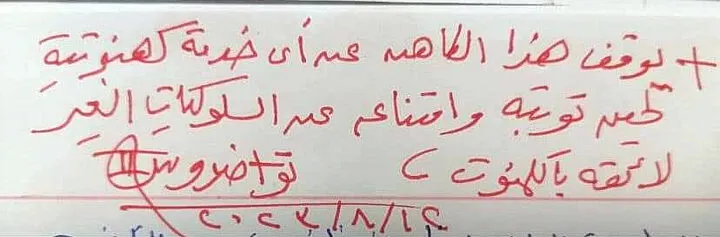 + يوقف هذا الكاهن عن أى خدمة كهنوتية
لحين توبته وامتناعه عن السلوكيات الغير
لائقة بالكهنوت
تواضروس II
٢٠٢٣/٨/١٤